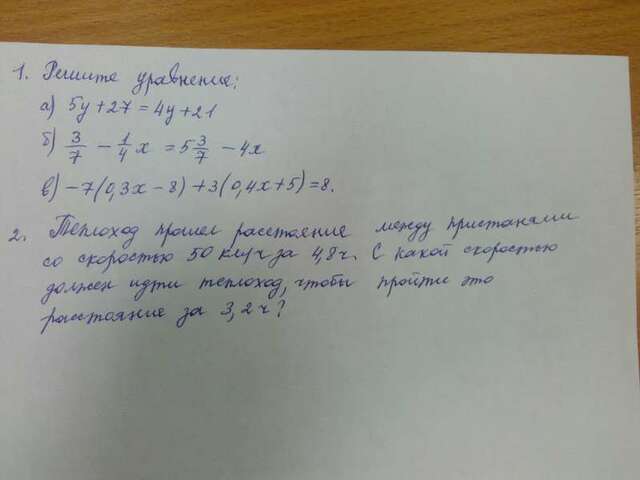 1. Решите уравнение:
а) 5y + 27 = 4y + 21
б) 3/7 - 1/4 x = 5 3/7 - 4x
в) -7(0,3x - 8) + 3(0,4x + 5) = 8.
2. Теплоход прошел расстояние между пристанями
со скоростью 50 км/ч за 4,8 ч. С какой скоростью
должен идти теплоход, чтобы пройти это
расстояние за 3,2 ч?